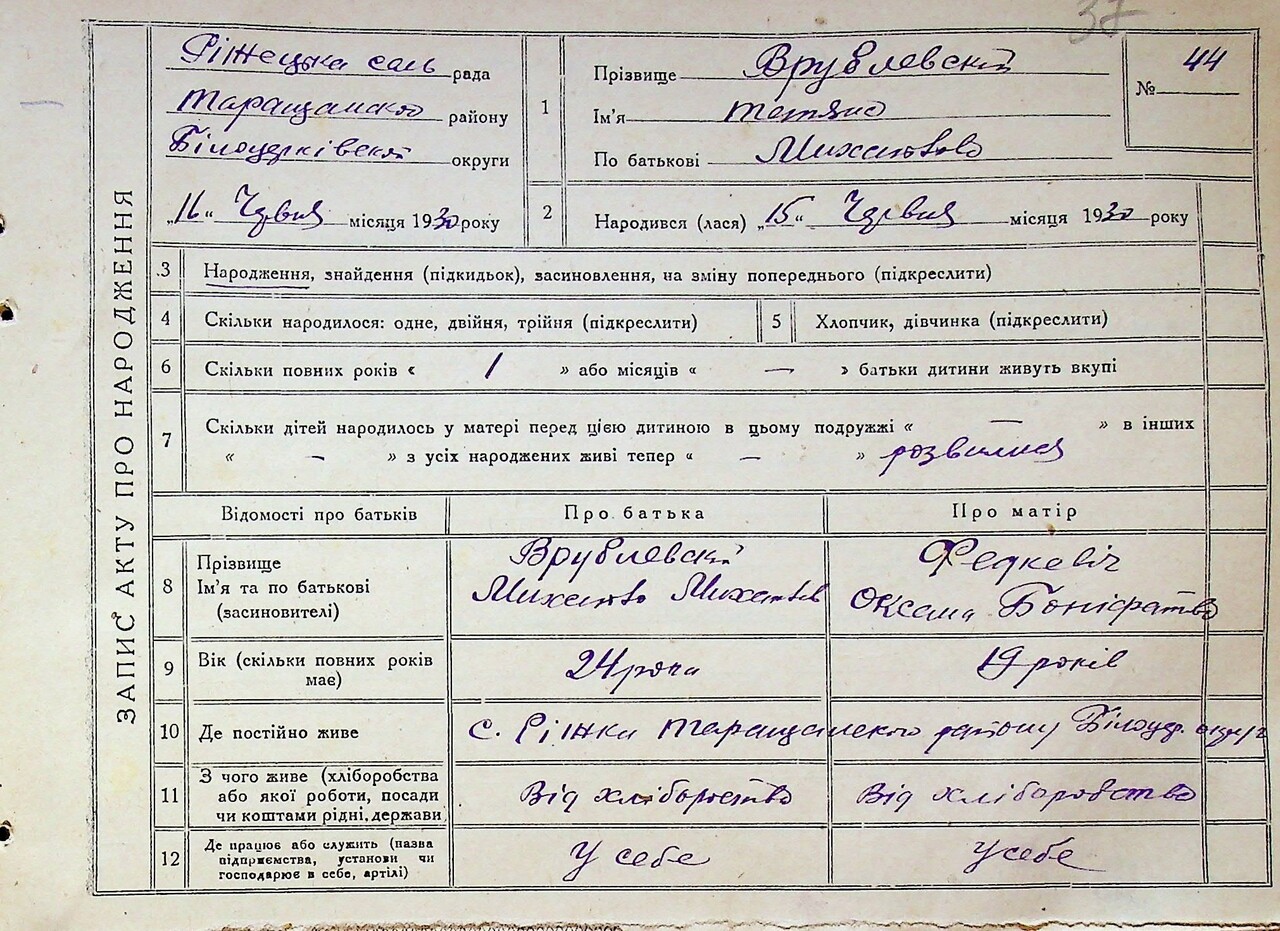 37
Ріжецька сель рада
Таращанского району
Білоцерківскої округи
„16“ Червня місяця 1930 року
1
Прізвище Врублевскій
Ім’я Тетяна
По батькові Михайлова
№ 44
2
Народився (лася) „15“ Червня місяця 1930 року
ЗАПИС АКТУ ПРО НАРОДЖЕННЯ
3 Народження, знайдення (підкидьок), засиновлення, на зміну попереднього (підкреслити)
4 Скільки народилося: одне, двійня, трійня (підкреслити) 5 Хлопчик, дівчинка (підкреслити)
6 Скільки повних років « 1 » або місяців « — » батьки дитини живуть вкупі
7 Скільки дітей народилось у матері перед цією дитиною в цьому подружжі « — » в інших
« - » з усіх народжених живі тепер « - » розвилися
Відомості про батьків Про батька Про матір
8 Прізвище
Ім’я та по батькові
(засиновителі)
Врублевскій
Михайло Михайлов
Федкевіч
Оксана Боніфатво
9 Вік (скільки повних років
має)
24 роки
19 років
10 Де постійно живе с. Ріжки Таращанского району Білоцер. округи
11 З чого живе (хліборобства
або якої роботи, посади
чи коштами рідні, держави
Від хліборобство
Від хліборобство
12 Де працює або служить (назва
підприємства, установи чи
господарює в себе, артілі)
У себе
У себе